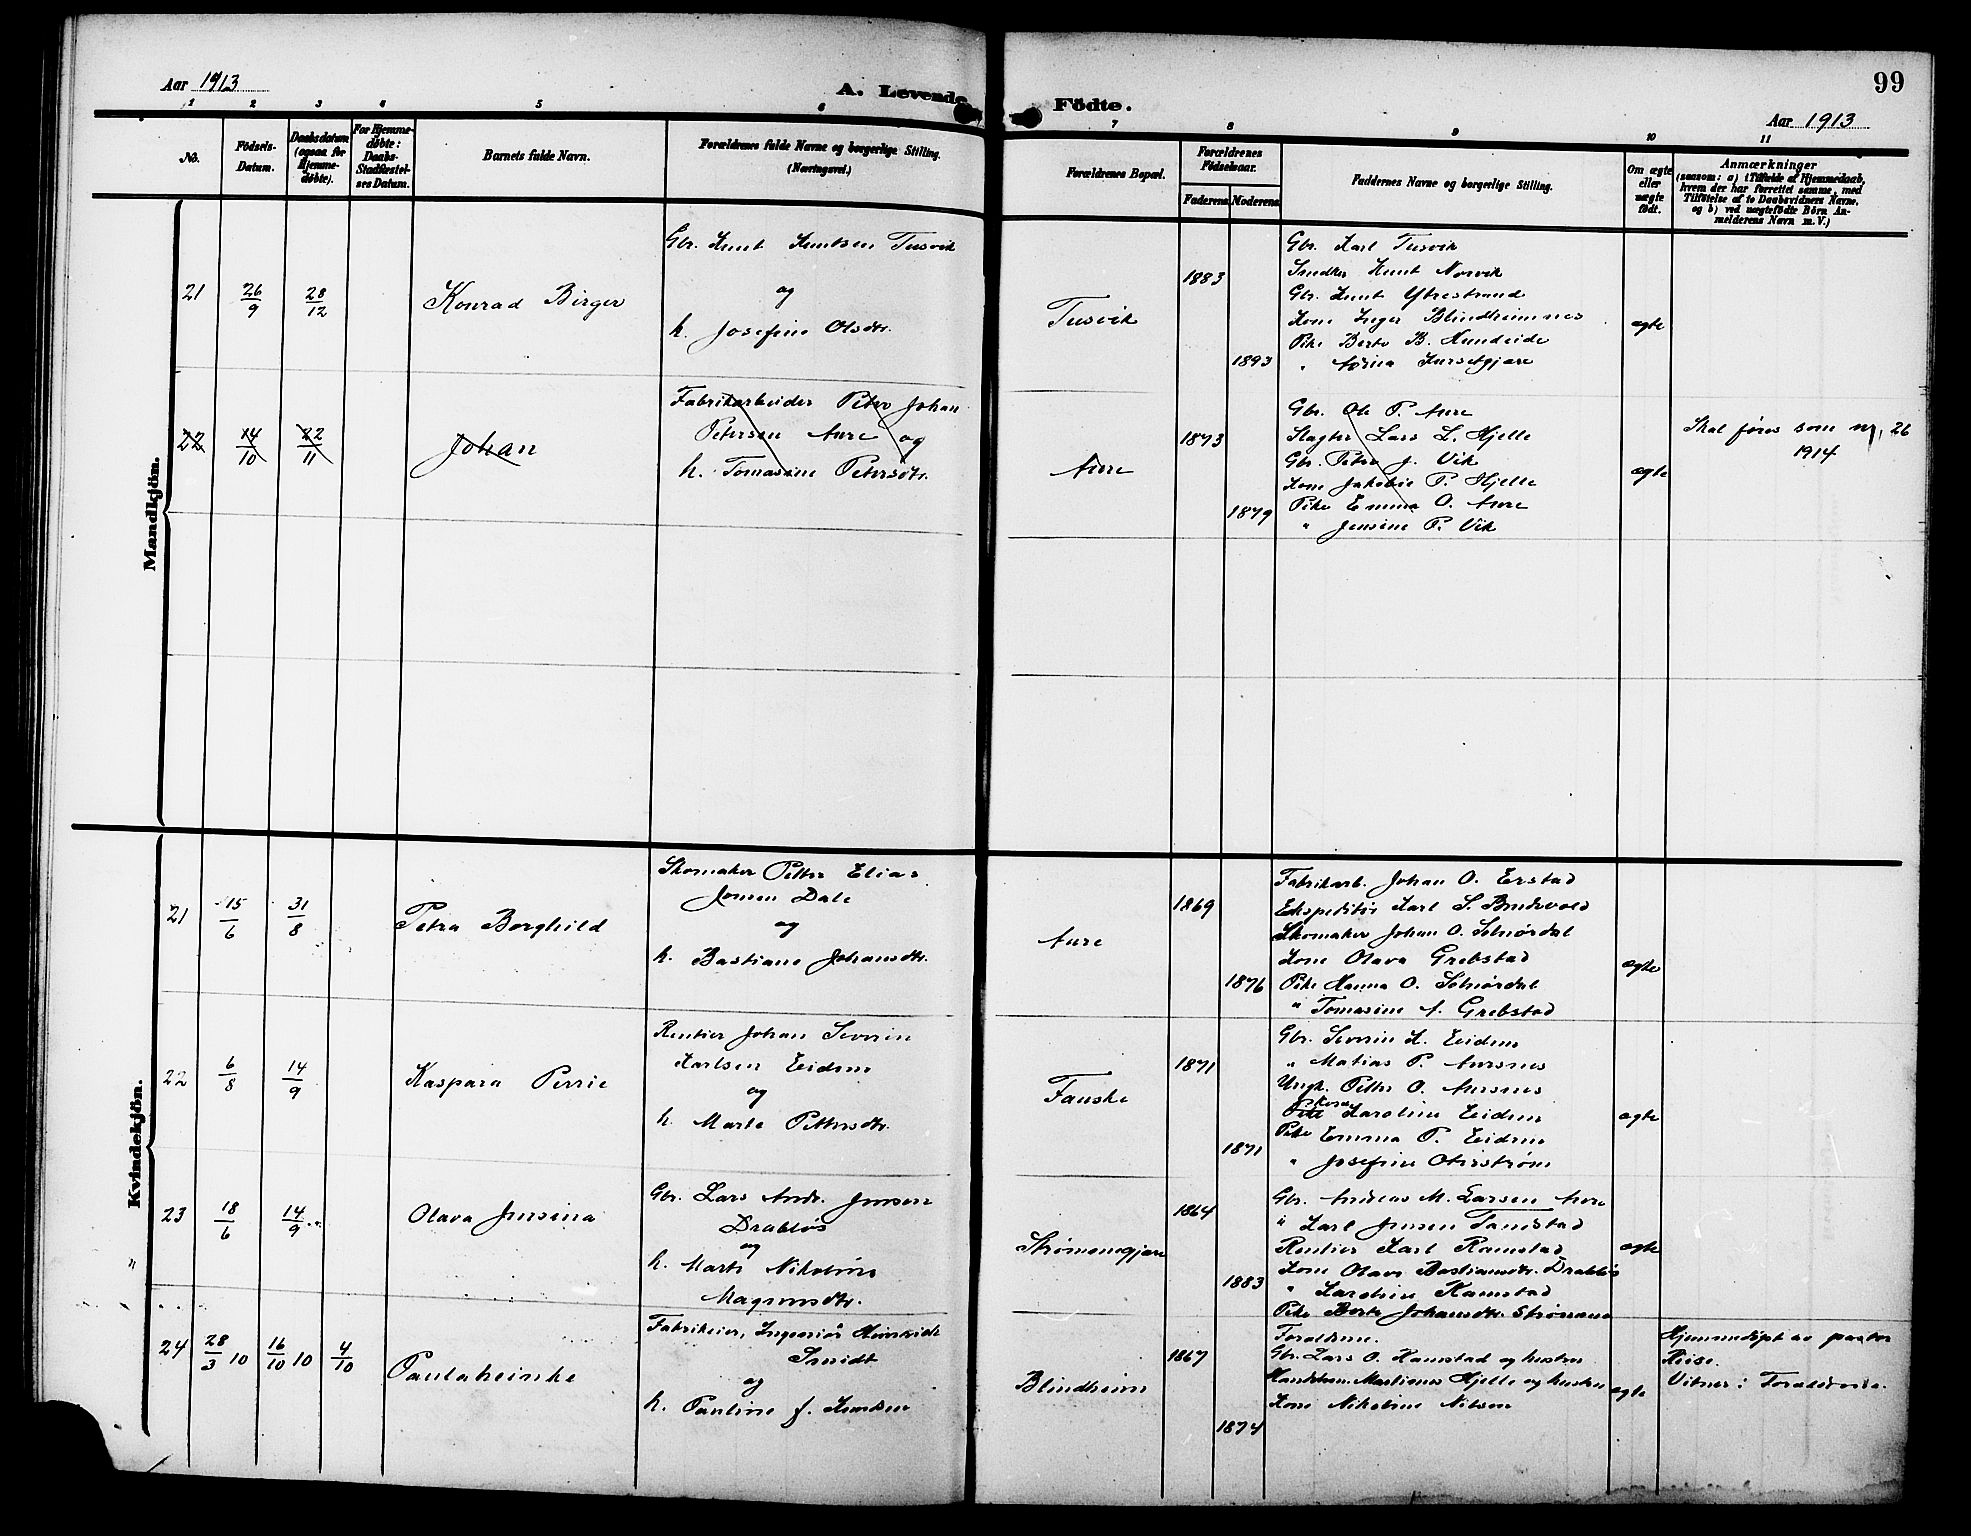 Aar 1913
A. Levende Födte.
99
Aar 1913
1 2 3 4 5 6 7 8 9 10 11
No.
Födsels-
Datum.
Daabsdatum
(ogsaa for
Hjemme-
døbte).
For Hjemme-
døbte:
Daabs-
Stadfæstel-
ses Datum.
Barnets fulde Navn.
Forældrenes fulde Navne og borgerlige Stilling.
(Næringsvei.)
Forældrenes Bopæl.
Forældrenes
Födselsaar.
Faderens Moderens
Faddernes Navne og borgerlige Stilling.
Om ægte
eller
uægte
födt.
Anmærkninger
(saasom: a) i Tilfælde af Hjemmedaab,
hvem der har forrettet samme, med
Tilføielse af to Daabsvidners Navne,
og b) ved uægtefödte Börn An-
melderens Navn m. V.)
Mandkjön.
21
26/9
28/12
Konrad Birger
Gbr. Knut Knutsen Tusvik
og
h. Josefine Olsdtr.
Tusvik
1883
1893
Gbr. Karl Tusvik
Snedker Knut Norvik
Gbr. Knut Ytrestrand
Kone Inger Blindheimnes
Pike Berte B. Hundeide
" Kursetgjære
ægte
22
14/10
22/11
Johan
Fabrikarbeider Peter Johan
Petersen Aure og
h. Tomasine Petersdtr.
Aure
1873
1879
Gbr. Ole P. Aure
Slagter Lars L. Hjelle
Gbr. Peter J. Vik
Kone Jakobie P. Hjelle
Pike Emma O. Aure
" Jensine P. Vik
ægte
Skal føres som nr, 26
1914
Kvindekjön.
21
15/6
31/8
Petra Borghild
Skomaker Petter Elias
Jonsen Dale
og
h. Bastiane Johansdtr.
Aure
1869
1876
Fabrikarb. Johan O. Erstad
Ekspeditør Karl S. Brudevold
Skomaker Johan O. Solnørdal
Kone Olava Grebstad
Pike Hanna O. Solnørdal
" Tomasine A. Grebstad
ægte
22
6/8
14/9
Kaspara Perrie
Rentier Johan Severin
Karlsen Eidem
og
h. Marte Pettersdtr.
Fauske
1871
1871
Gbr. Severin K. Eidem
" Matias P. Aursnes
Ungk. Petter O. Aursnes
Kone Karoline Eidem
Pike Emma P. Eidem
" Josefine
ægte
23
"
18/6
14/9
Olava Jensina
Gbr. Lars Andr. Jensen
Drabløs
og
h. Marte Nikoline
Magnusdtr.
Strømmegjære
1864
1883
Gbr. Andreas M. Larsen Aure
" Karl Jensen Tandstad
Rentier Karl Ramstad
Kone Olave Bastiansdtr. Drabløs
" Karoline Ramstad
Pike Berte Johansdtr. Strømme
ægte
24
28/3 10
16/10 10
4/10
Paulaheinke
Fabrikeier, Ingeniør
Smidt
og
h. Pauline J. Knudsen
Blindheim
1867
1874
Forældrene.
Gbr. Lars O. Ramstad og hustru
Handelsm. Martinus Hjelle og hustru
Kone Nikoline Nilsen
ægte
Hjemmedøpt av pastor
Riise.
Vitner: Forældrene.